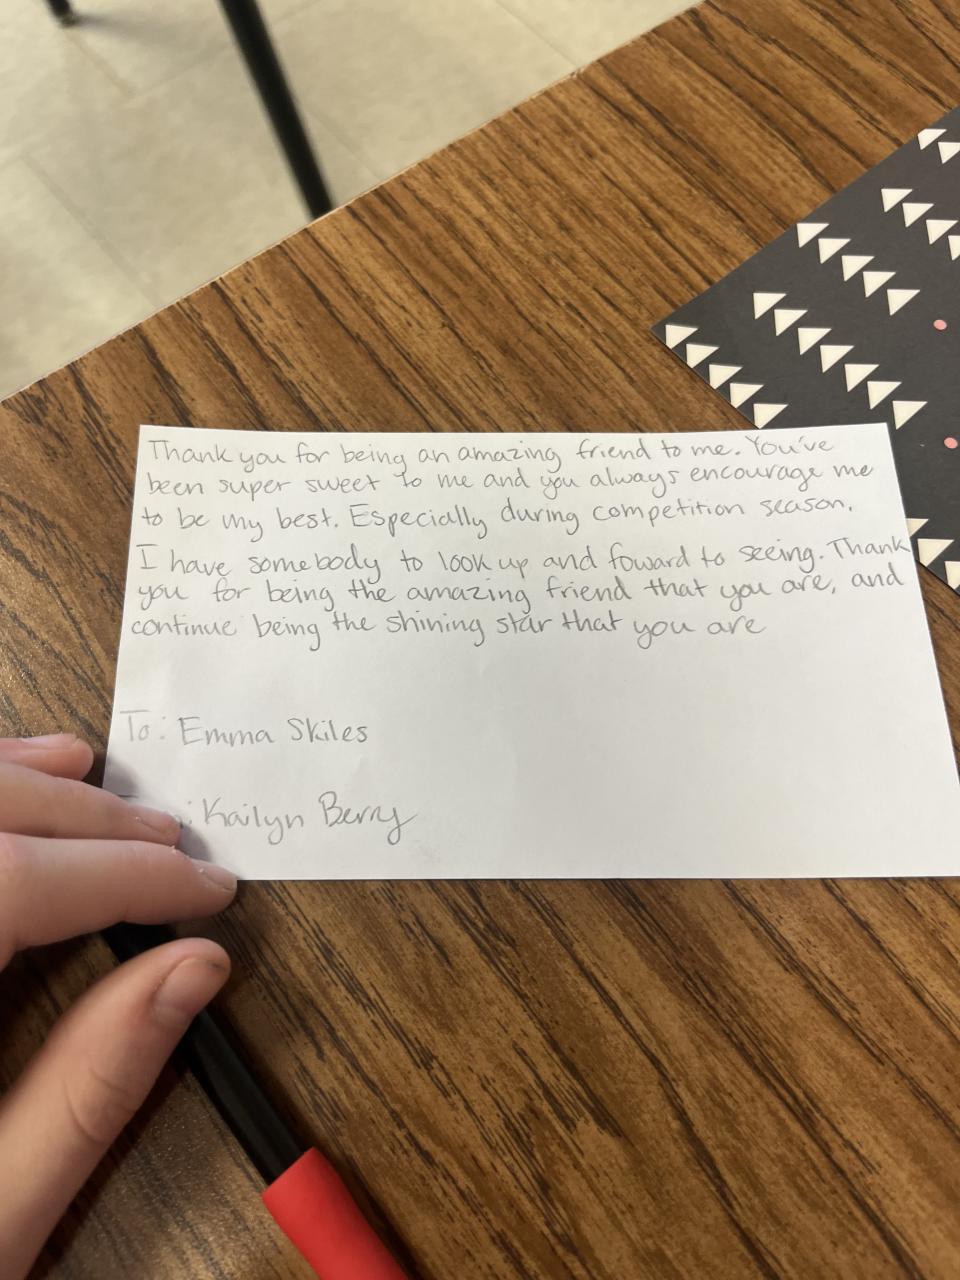 Thank you for being an amazing friend to me. You've
been super sweet to me and you always encourage me
to be my best. Especially during competition season.
I have somebody to look up and foward to seeing. Thank
you for being the amazing friend that you are, and
continue being the shining star that you are
To: Emma Skiles
: Kailyn Berry